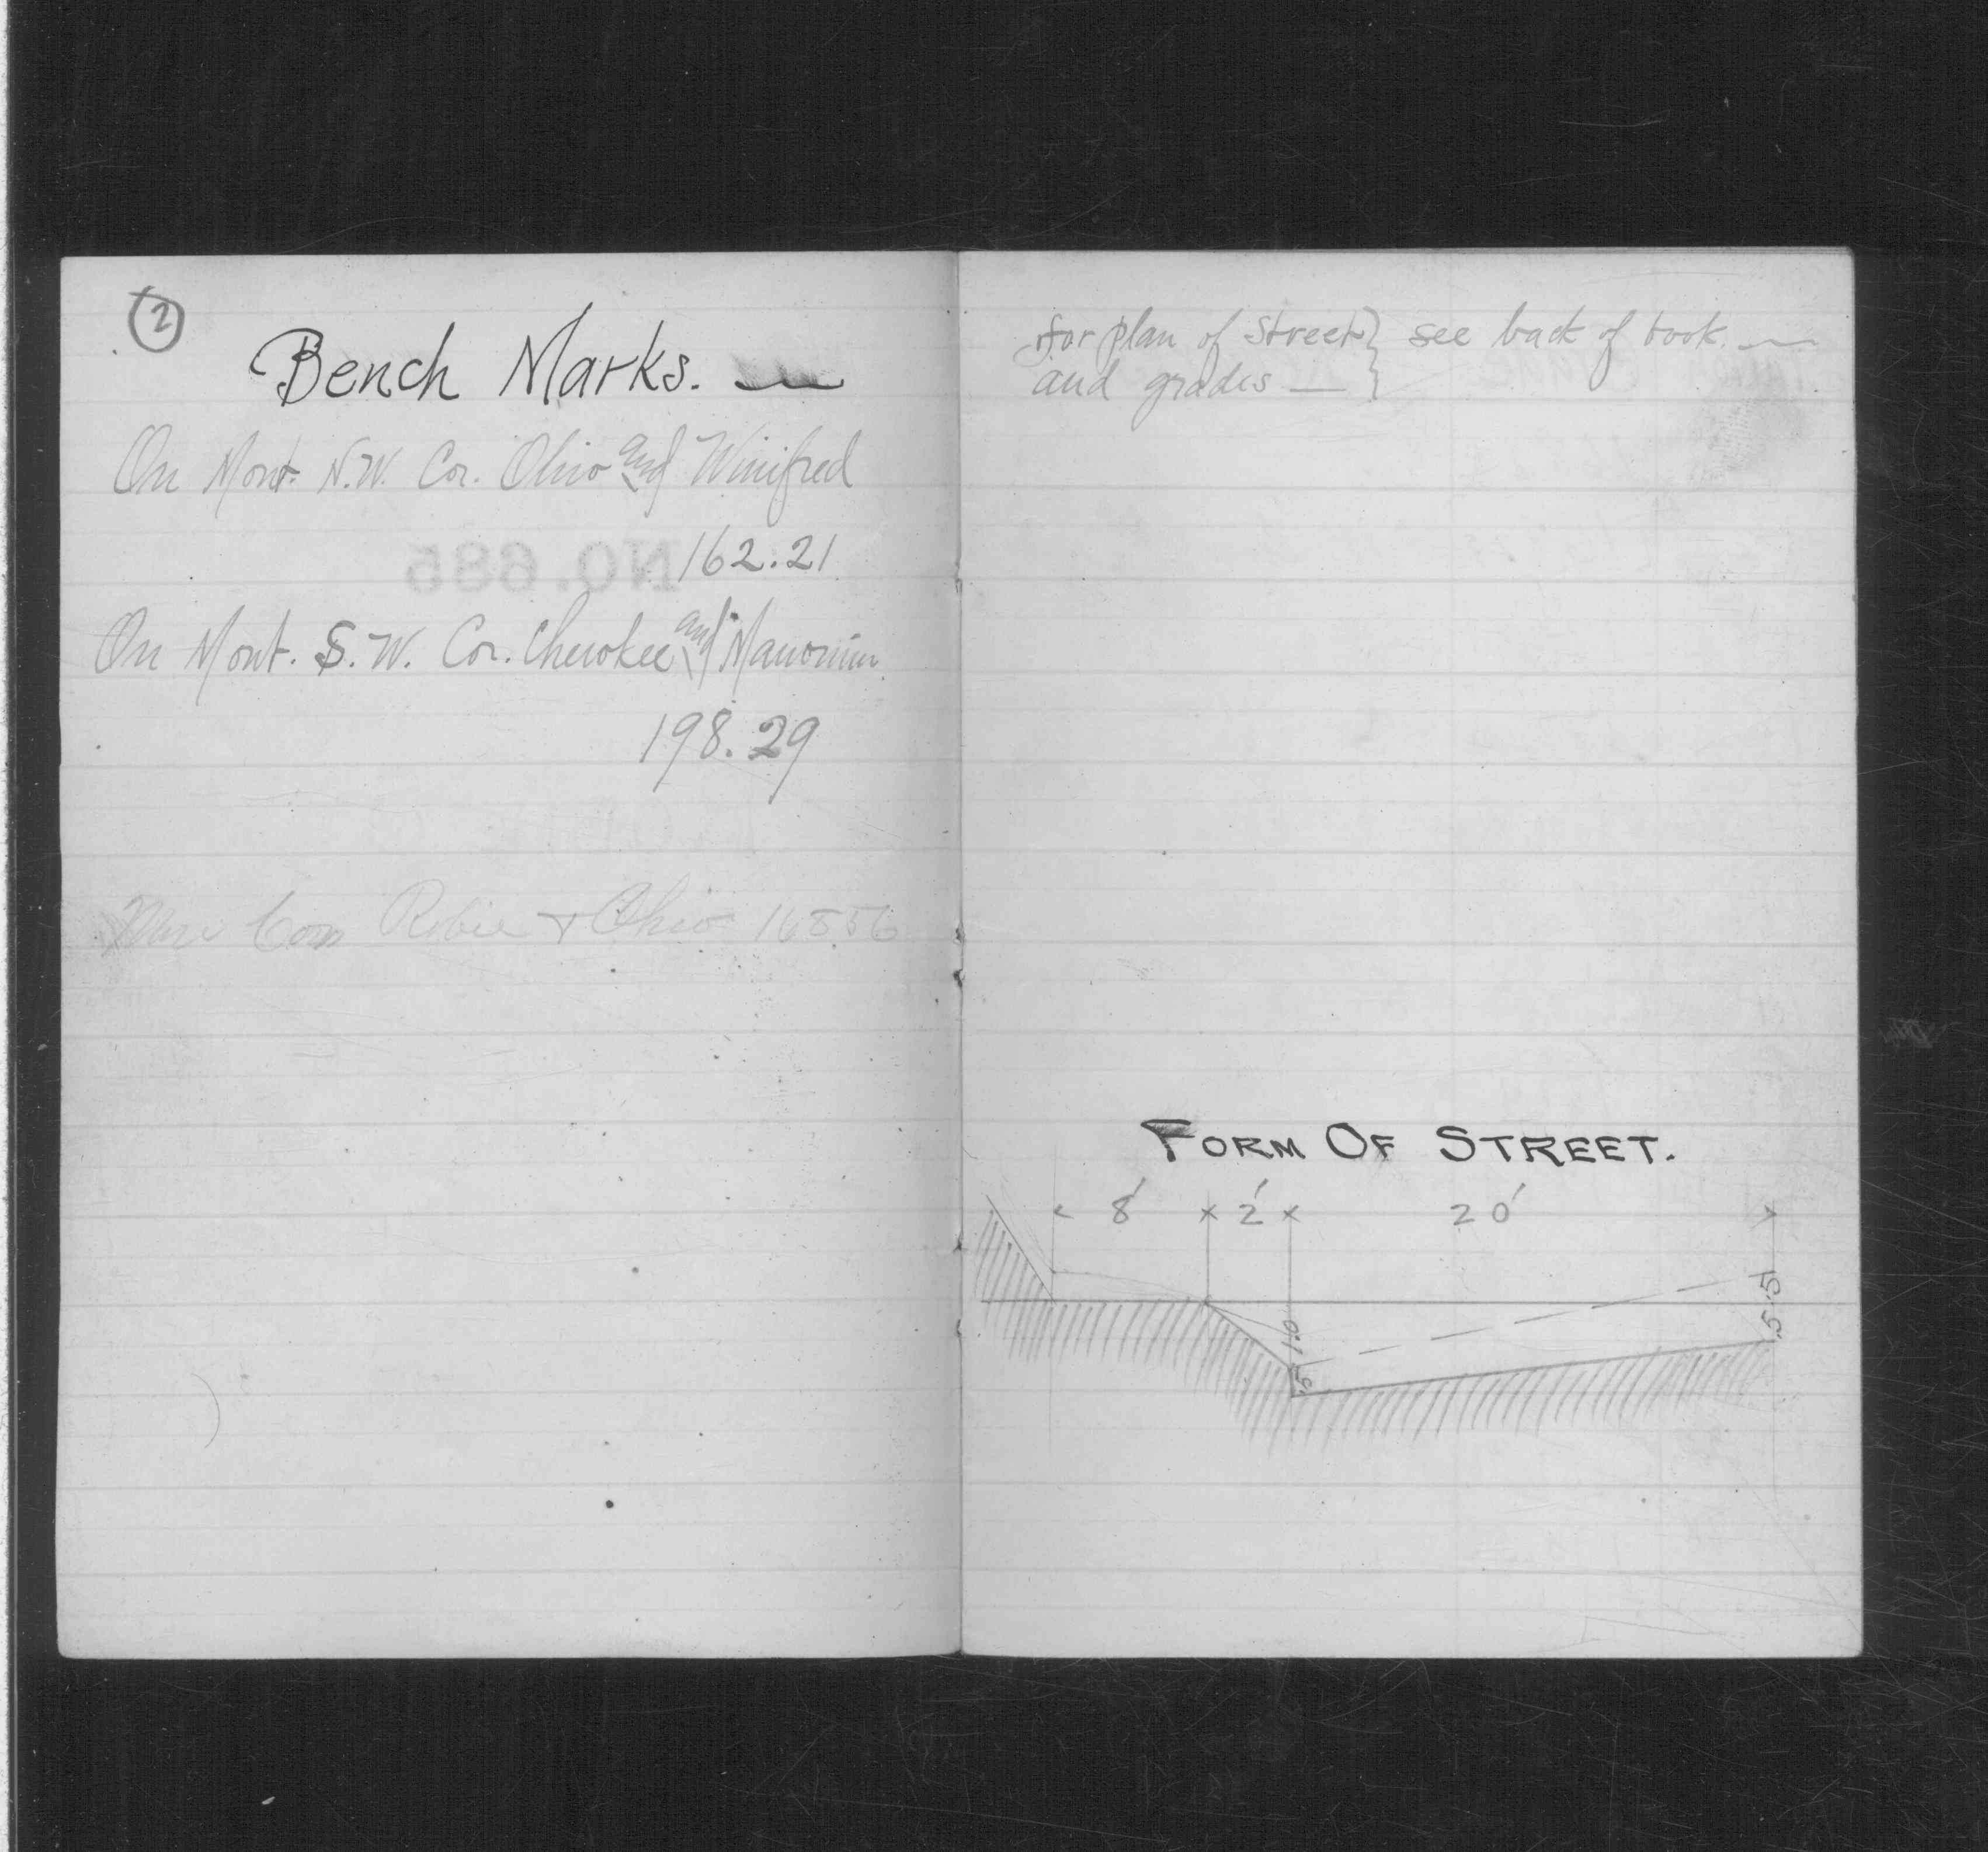 2
Bench Marks.
On Mont. N.W. Cor. Ohio and Winifred
162.21
NO. 685
On Mont. S.W. Cor. Cherokee and
198.29
Robie & Ohio
for plan of Street } see back of book.
and grades
FORM OF STREET.
8' 2' 20'
1.0
.5
.55